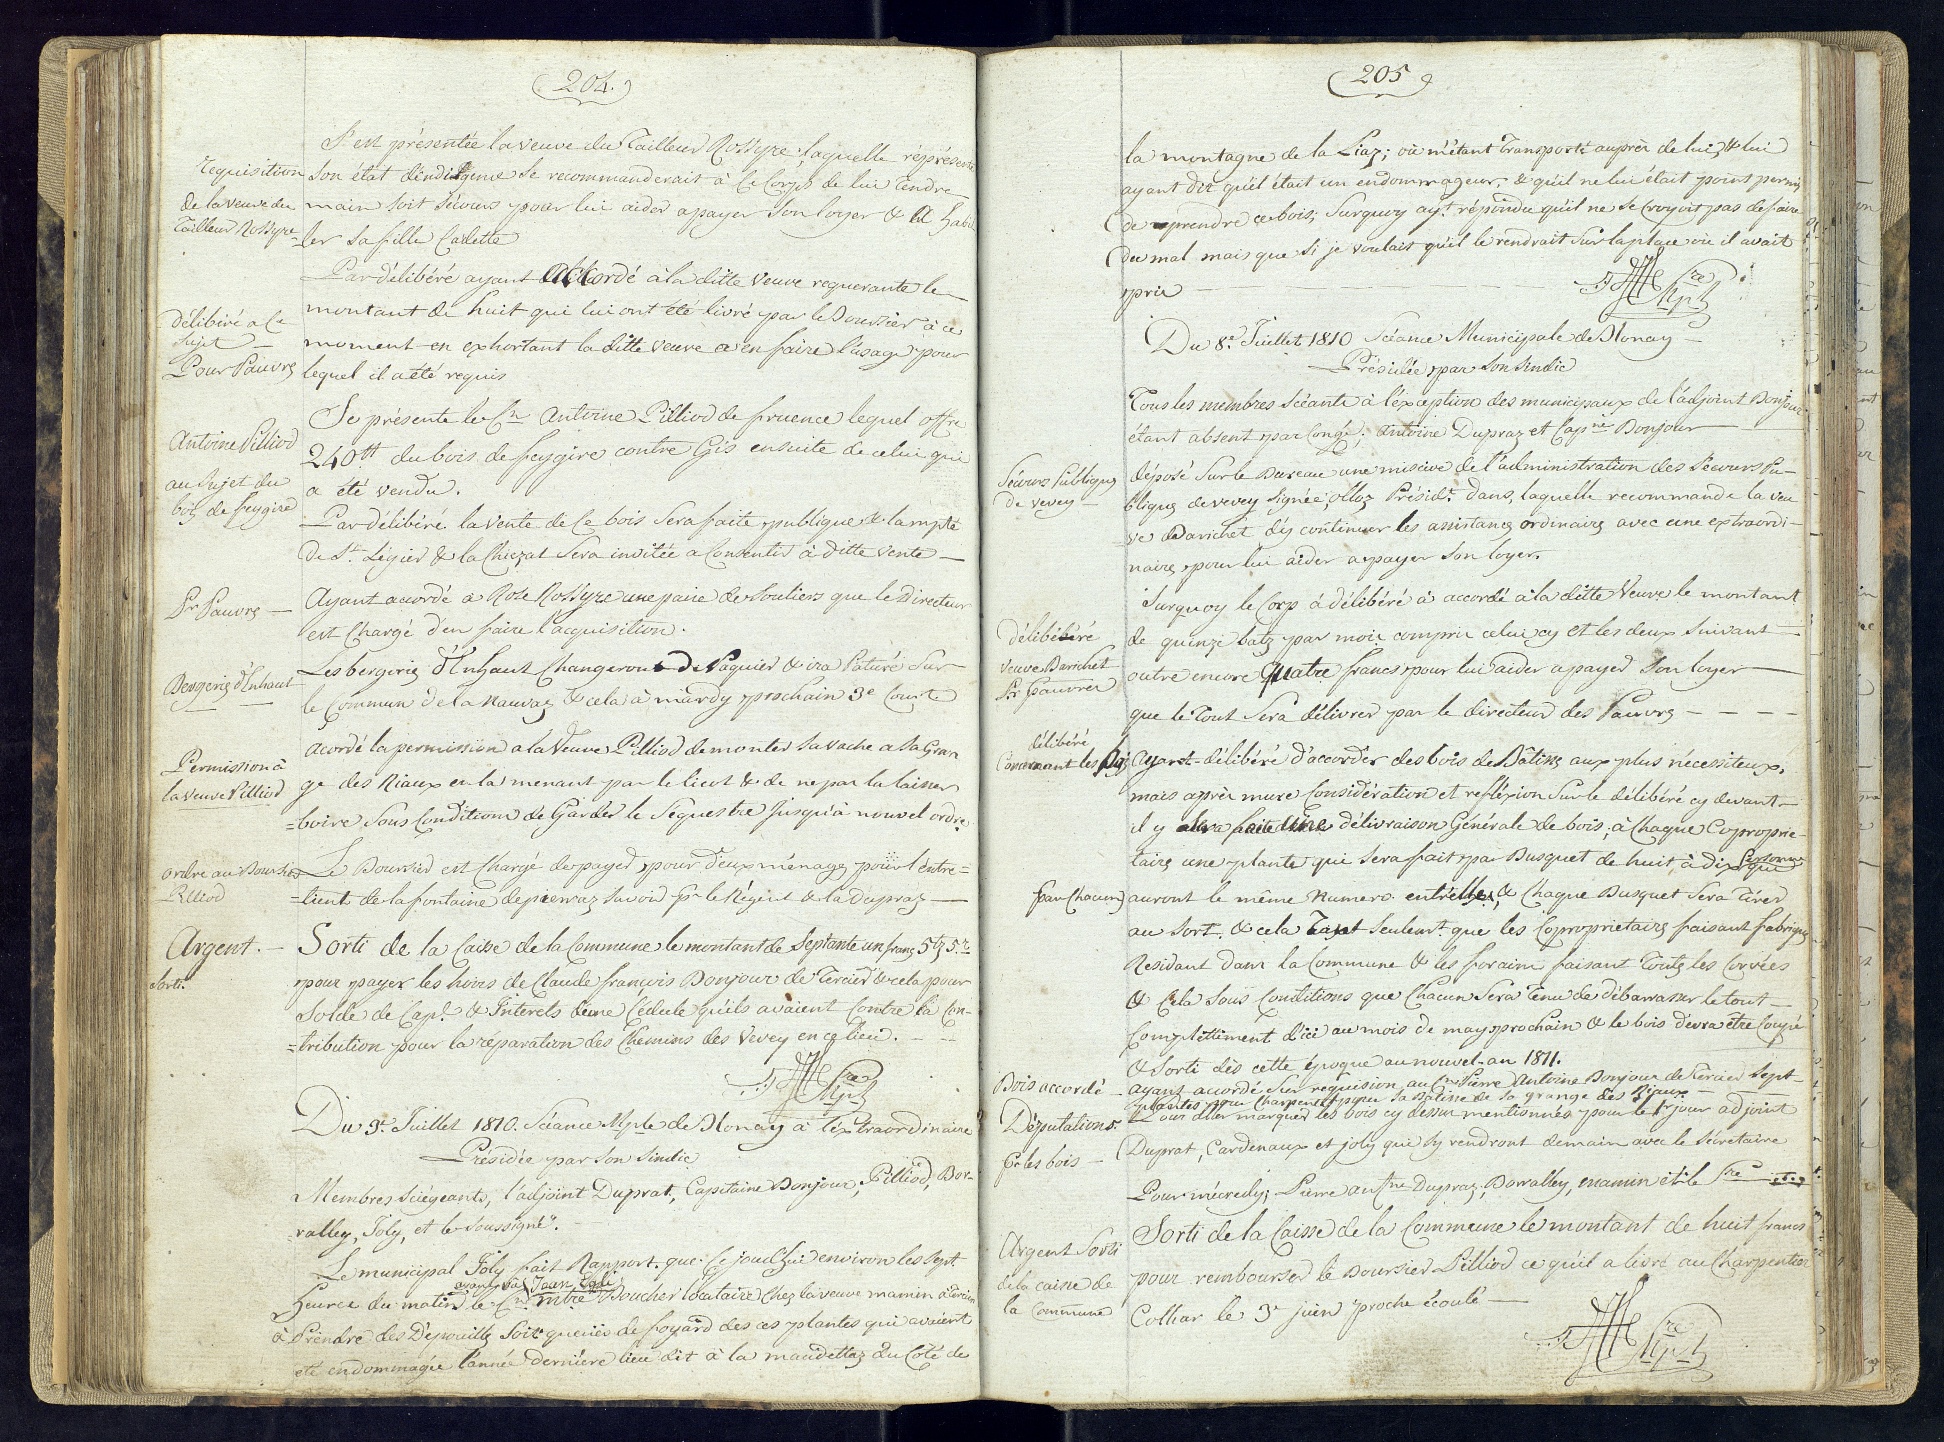 204.
S'est présentée la veuve du Tailleur Rossyre, laquelle réprésente
Requisition
son état d'endigence se recommanderait à Ce Corps de lui Tendre
de la veuve du
main soit sécours pour lui aider a payer son loyer & ha habil
Tailleur Rossyre
ler sa fille Cadette
Par délibéré ayant accordé à la ditte veuve requerante le
Délibéré a Ce
montant de huit qui lui ont été livré par le Boursier à ce
Sujet
moment en exhortant la ditte veuve a en faire l'usage pour
Pour Pauvres
lequel il a été requis
Se présente le Cn Antoine Pilliod de fruence lequel offre
Antoine Pilliod
240 tt du bois de feygire contre Gis ensuite de celui qui
au sujet du
a été vendu.
bois de feygire
Par délibéré la vente de Ce bois sera faite publique & la mpté
de St. Légier & la Chiezat sera invitée a Consentir à ditte vente
Pr Pauvres
Ayant accordé a Rose Rossyre une paire de Souliers que le Directeur
est Chargé d'en faire l'acquisition.
Les bergeries d'Enhaut Changeront de Paquier & ira Paturé Sur
Bergeries d'Enhaut
le Commun de la Nauvaz & cela à mardy prochain 3e Court
acordé la permission a la Veuve Pilliod de monter sa vache a sa Gran
Permission à
la veuve Pilliod
ge des Riaux en la menant par le licut & de ne pas la laisser
=boire sous Conditions de Garder le Séquestre jusqu'à nouvel ordre
ordre au Boursier
Pilliod
Le Boursier est Chargé de payer pour deux ménages pour l'entre=
=tient de la fontaine de pierraz savoir pr le Régent & la Dupraz
Argent.
Sorti.
Sorti de la Caisse de la Commune le montant de Septante un francs 5 bz 5 rs
pour payer les hoirs de Claude françois Bonjour de Tercier & cela pour
Solde de Capl. & Interets d'une Cédule qu'ils avaient Contre la Con-
=tribution pour la réparation des Chemins des Vevey en ce lieu.
Du 3e. Juillet 1810. Séance Mple de Blonay à l'éxtraordinaire
Présidée par son sindic
Membres Siégeants, l'adjoint Duprat, Capitaine Bonjour, Pilliod, Bor-
=ralley, Joly, et le soussigné.
Le municipal Joly fait Rapport. que Ce jourd'hui environ les sept
ayant vû Jean Egli
heures du matin le Cn mtre Boucher locataire Chez la veuve mamin à Tercier
à Prendre des Dépouilles soit queues de foyard des ces plantes qui avaient
été endommagée l'année dernière lieu dit à la maudettaz du Côté de
205
la montagne de la Liaz; où m'étant Transporté auprès de lui, & lui
ayant dit qu'il était un endommageur, & qu'il ne lui était point permis
de prendre ce bois; Surquoy ayt. répondu qu'il ne se Croyoit pas de faire
du mal mais que si je voulais qu'il le rendrait Sur la place où il avait
pris
Du 8e. Juillet 1810 Séance Municipale de Blonay
Présidée par son sindic
Tous les membres séants à l'éxception des municipaux de l'adjoint Bonjour
étant absent par Congé; Antoine Dupraz et Capne Bonjour
Sécours Publiques
de vevey
déposé Sur le Bureau une missive de l'administration des Sécours Pu-
bliques de vevey Signée, olloz Présidt. dans laquelle recommande la veu
ve Barichet d'y continuer les assistances ordinaires avec une extraordi-
naire pour lui aider a payer son loyer.
Surquoy le Corp a délibéré à accordé à la ditte Veuve le montant
délibéré
de quinze batz par mois compris celui cy et les deux suivant
veuve Barichet
Pr Pauvres
outre encore Quatre francs pour lui aider a payer son loyer
que le Tout sera délivrer par le directeur des Pauvres
délibéré
Concernant les Bois
Ayant délibéré d'accorder des bois de Bâtises aux plus nécessiteux,
mais après mure Considération et refléxion sur le délibéré cy devant
il y sera faite une délivraison Générale de bois, à Chaque Coproprie-
taire une plante qui sera fait par Busquet de huit à dix Personnes que
(par Chacun)
auront le même Numero entr'elles, & Chaque Busquet Sera Tirer
au Sort. & cela Tant Seulemt. que les Coproprietaires faisant fabriques
Residant dans la Commune & les forains faisant toutes les Corvées
& Cela Sous Conditions que Chacun Sera Tenu de débarrasser le tout
Complettement d'ici au mois de may prochain & le bois devra être Coupé
& Sorti dès cette époque au nouvel-an 1811.
Bois accordé
ayant accordé Sur requision au Cn Pierre Antoine Bonjour de Tercier Sept
plantes pour Charpente pour la Bâtise de sa grange des Riaux.
Députations
Pour aller marquer les bois cy dessus mentionnés pour le 1r jour adjoint
Pr les bois
Duprat, Cardenaux et joly qui s'y rendront demain avec le sécretaire
Pour mécredy; Pierre antne Dupraz, Borralley, mamin et le Sre
Argent Sorti
de la caisse de
la Commune
Sorti de la Caisse de la Commune le montant de huit francs
pour rembourser le Boursier Pilliod ce qu'il a livré au Charpentier
Colliar le 3e juin proche écoulé